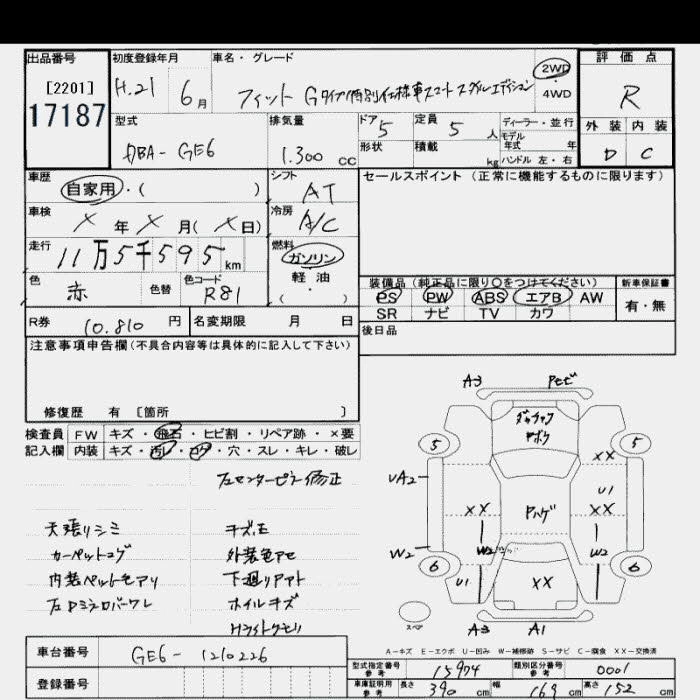 出品番号 初度登録年月 車名・グレード 2WD 評価点
[2201] H.21 6月 フィット Gタイプ特別仕様車スマートスタイルエディション 4WD R
17187
型式 排気量 ドア 5 定員 5人 ディーラー・並行 外装 内装
モデル年式 年
DBA-GE6 1.300 cc 形状 積載 kg ハンドル 左・右 D C
車歴 シフト セールスポイント (正常に機能するものに限ります)
自家用・( ) AT
車検 冷房
X年X月(X日) A/C
走行 燃料
11万5千595km ガソリン
色 色替 色コード 軽油 装備品 (純正品に限り〇をつけてください) 新車保証書
赤 R81 ・( ) PS PW ABS エアB AW 有・無
SR ナビ TV カワ
R券 10.810円 名変期限 月 日 後日品
注意事項申告欄(不具合内容等は具体的に記入して下さい)
修復歴 有 [箇所 ]
検査員 FW キズ・飛石・ヒビ割・リペア跡・×要
記入欄 内装 キズ・汚レ・コゲ・穴・スレ・キレ・破レ
左センターピラー修正
天張リシミ キズ、E
カーペットコゲ 外装色アセ
内装ペットモアリ 下廻リアト
左Dミラーカバーワレ ホイルキズ
Hライトクモリ
A3
5 5
XX
UA2 U1
XX XX
Pハゲ
W2 W2 W2
6 6
U1 XX
スペア A3 A1
A-キズ E-エクボ U-凹み W-補修跡 S-サビ C-腐食 XX-交換済
車台番号 GE6-1210226
型式指定番号 参考 15974 類別区分番号 参考 0001
登録番号
車庫証明用 参考 長さ 390cm 幅 169cm 高さ 152cm